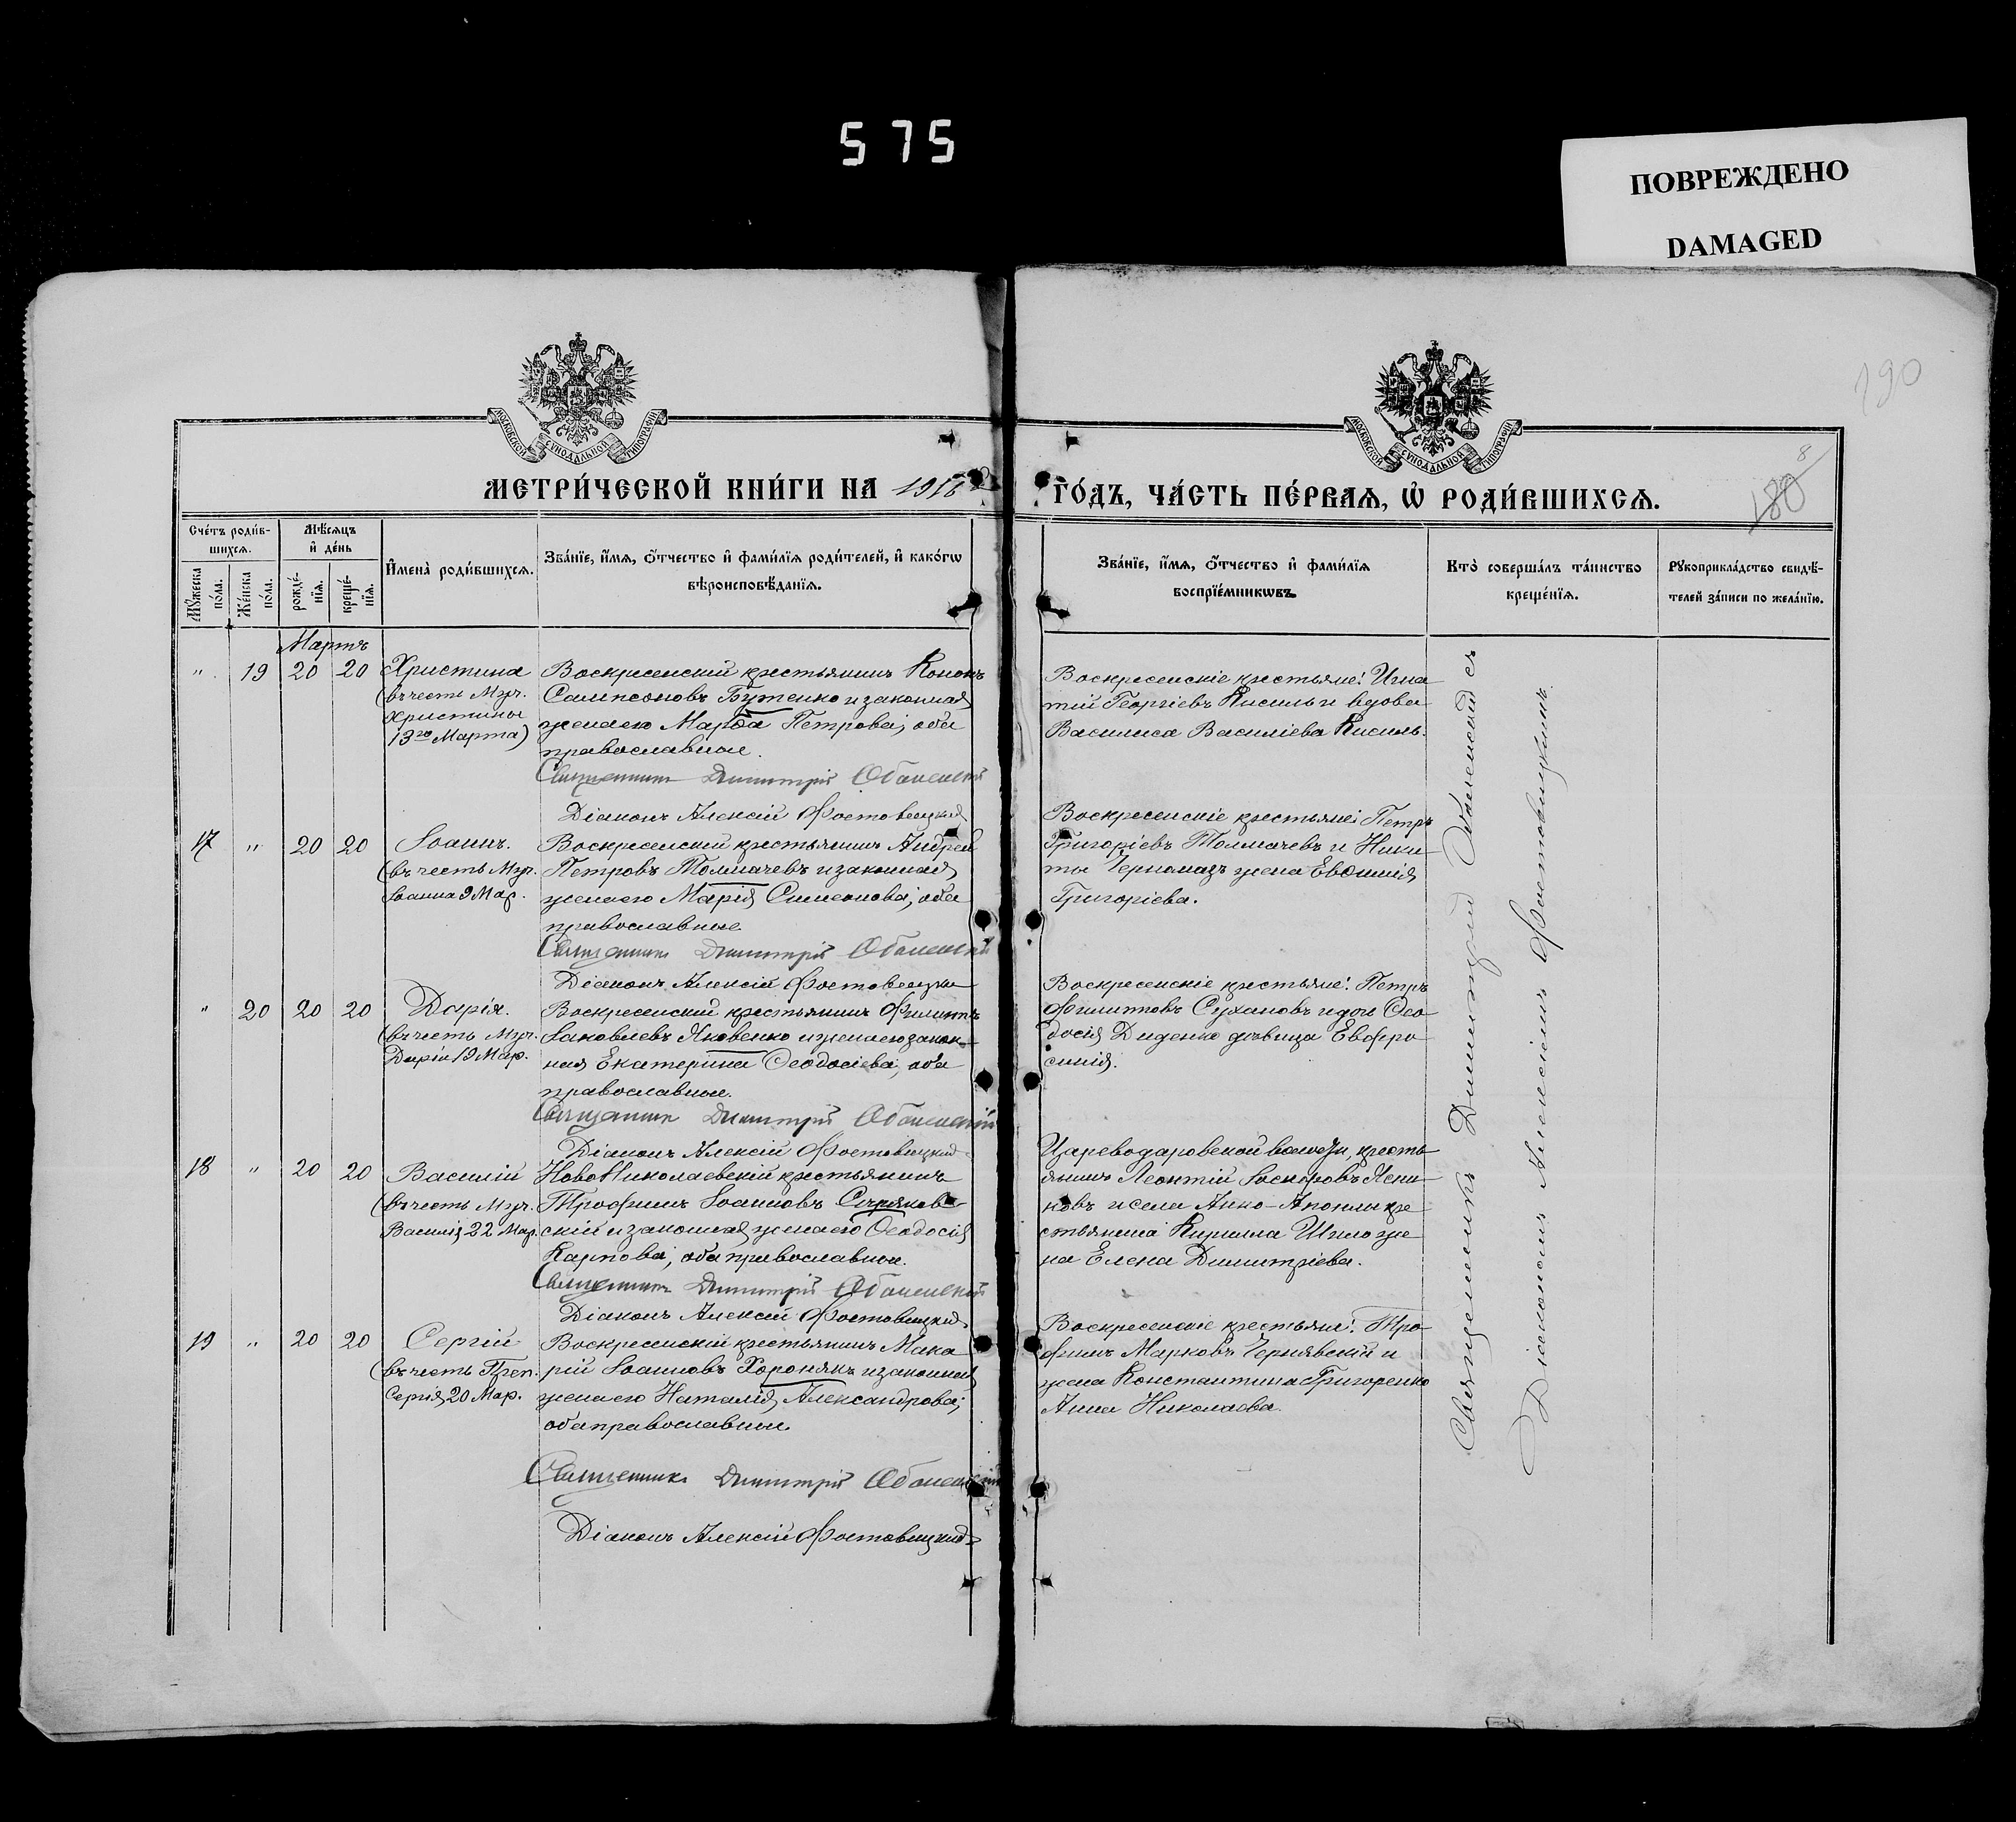 575
ПОВРЕЖДЕНО
DAMAGED
190
МОСКОВСКОЙ СѴНОДАЛЬНОЙ ТИПОГРАФІИ
МОСКОВСКОЙ СѴНОДАЛЬНОЙ ТИПОГРАФІИ
МЕТРИ́ЧЕСКОЙ КНИ́ГИ НА 1916
ГО́ДЪ, ЧА́СТЬ ПЕ́РВАѦ, Ѽ РОДИ́ВШИХСѦ.
180
8
Сче́тъ роди́в-
шихсѧ.
Мѣ́сѧцъ
и҆ де́нь
Мꙋ́жеска по́ла.
Же́нска по́ла.
рожде́-нїѧ.
креще́-нїѧ.
И҆мена̀ роди́вшихсѧ.
Зва́нїе, и҆́мѧ, ѻ҆́тчество и҆ фами́лїѧ роди́телей, и҆ како́гѡ
вѣроисповѣ́данїѧ.
Зва́нїе, и҆́мѧ, ѻ҆́тчество и҆ фами́лїѧ
воспрїе́мникѡвъ.
Кто̀ соверша́лъ та́инство
креще́нїѧ.
Рꙋкоприкла́дство свидѣ́-
телей за́писи по жела́нїю.
Мартъ
" 19 20 20 Христина
(въ честь Муч.
Христины
13го Марта)
Воскресенскій крестьянинъ Кононъ
Сампсоновъ Бутенко и законная
жена его Марѳа Петрова; оба
православные.
Священникъ Димитрій Оболенскій
Діаконъ Алексій Фостовецкій
Воскресенскіе крестьяне: Игна-
тій Георгіевъ Кисиль и вдова
Василиса Василіева Кисиль.
17 " 20 20 Іоаннъ.
(въ честь Муч.
Іоанна 9 Мар.
Воскресенскій крестьянинъ Андрей
Петровъ Толмачевъ и законная
жена его Марія Симеонова; оба
православные.
Священникъ Димитрій Оболенскій
Діаконъ Алексій Фостовецкій
Воскресенскіе крестьяне: Петръ
Григоріевъ Толмачевъ и Ники-
ты Черномазъ жена Евѳимія
Григоріева.
" 20 20 20 Дарія.
(въ честь Муч.
Даріи 19 Мар.
Воскресенскій крестьянинъ Филиппъ
Іаковлевъ Яковенко и жена его закон-
ная Екатерина Ѳеодосіева; оба
православные.
Священникъ Димитрій Оболенскій
Діаконъ Алексій Фостовецкій
Воскресенскіе крестьяне: Петръ
Филипповъ Сухановъ и дочь Ѳео-
досія Диденко дѣвица Евфро-
синія.
18 " 20 20 Василій
(въ честь Муч.
Василія 22 Мар.
Ново Николаевскій крестьянинъ
Трофимъ Іоанновъ
скій и законная жена его Ѳеодосія
Карпова; оба православные.
Священникъ Димитрій Оболенскій
Діаконъ Алексій Фостовецкій
Цареводаровской волости, кресть-
янинъ Леонтій Іосифовъ
новъ и села Анно- кре-
стьянина Кирилла Шило же-
на Елена Димитріева.
19 " 20 20 Сергій
(въ честь Преп.
Сергія 20 Мар.
Воскресенскій крестьянинъ Мака-
рій Іоанновъ Хоронякъ и законная
жена его Наталія Александрова;
оба православные.
Священникъ Димитрій Оболенскій
Діаконъ Алексій Фостовецкій
Воскресенскіе крестьяне: Тро-
фимъ Марковъ Чернявскій и
жена Константина Григоренко
Анна Николаева.
Священникъ Димитрій Оболенскій съ
Діакономъ Алексіемъ Фостовецкимъ.